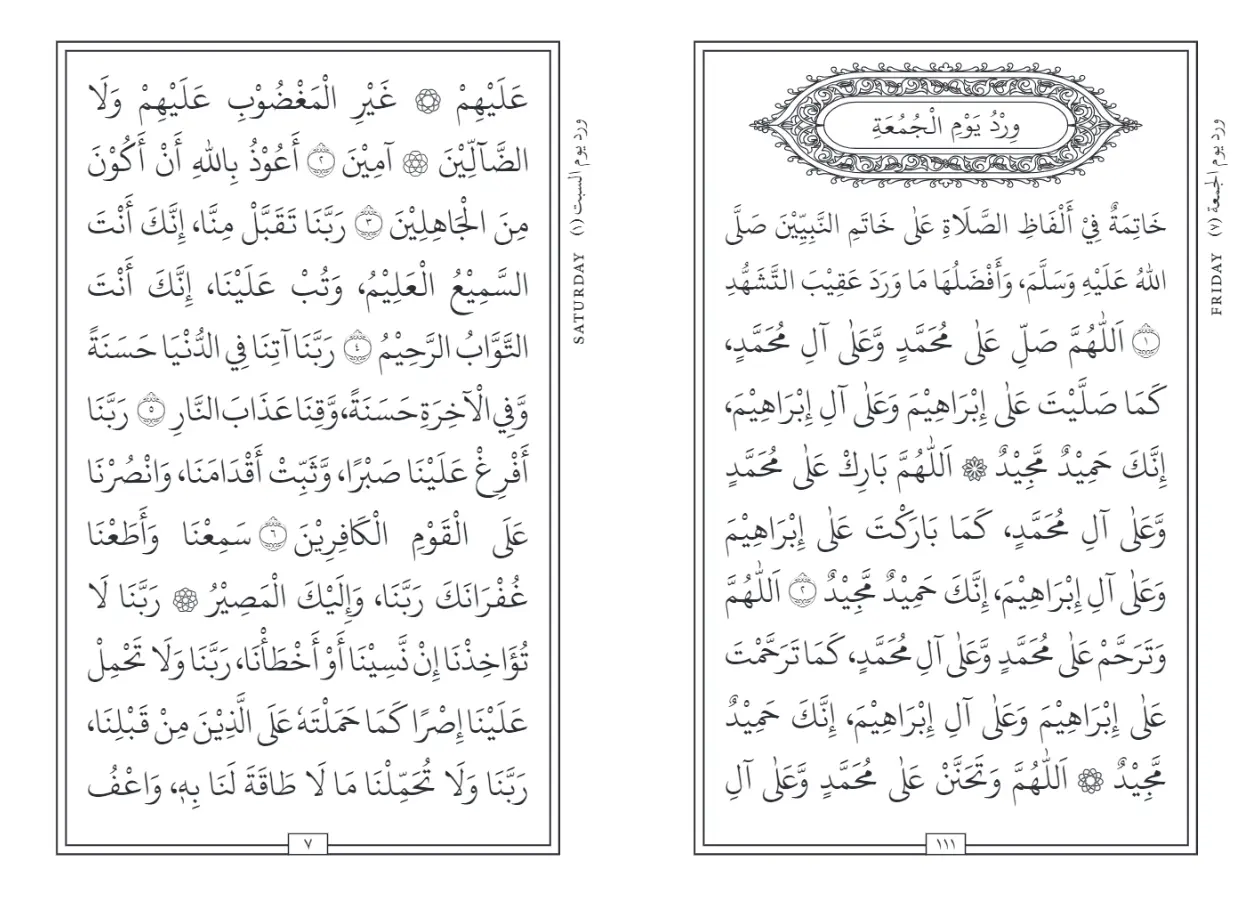 وِرْدُ يَوْمِ الْجُمُعَةِ
خَاتِمَةٌ فِيْ أَلْفَاظِ الصَّلَاةِ عَلٰى خَاتَمِ النَّبِيِّيْنَ صَلَّى
اللهُ عَلَيْهِ وَسَلَّمَ، وَأَفْضَلُهَا مَا وَرَدَ عَقِيْبَ التَّشَهُّدِ
١ اَللّٰهُمَّ صَلِّ عَلٰى مُحَمَّدٍ وَّعَلٰى آلِ مُحَمَّدٍ،
كَمَا صَلَّيْتَ عَلٰى إِبْرَاهِيْمَ وَعَلٰى آلِ إِبْرَاهِيْمَ،
إِنَّكَ حَمِيْدٌ مَّجِيْدٌ ۞ اَللّٰهُمَّ بَارِكْ عَلٰى مُحَمَّدٍ
وَّعَلٰى آلِ مُحَمَّدٍ، كَمَا بَارَكْتَ عَلٰى إِبْرَاهِيْمَ
وَعَلٰى آلِ إِبْرَاهِيْمَ، إِنَّكَ حَمِيْدٌ مَّجِيْدٌ ٢ اَللّٰهُمَّ
وَتَرَحَّمْ عَلٰى مُحَمَّدٍ وَّعَلٰى آلِ مُحَمَّدٍ، كَمَا تَرَحَّمْتَ
عَلٰى إِبْرَاهِيْمَ وَعَلٰى آلِ إِبْرَاهِيْمَ، إِنَّكَ حَمِيْدٌ
مَّجِيْدٌ ۞ اَللّٰهُمَّ وَتَحَنَّنْ عَلٰى مُحَمَّدٍ وَّعَلٰى آلِ
١١١
ورد يوم الجمعة (٧) FRIDAY
عَلَيْهِمْ ۞ غَيْرِ الْمَغْضُوْبِ عَلَيْهِمْ وَلَا
الضَّآلِّيْنَ ۞ آمِيْنَ ٢ أَعُوْذُ بِاللهِ أَنْ أَكُوْنَ
مِنَ الْجَاهِلِيْنَ ٣ رَبَّنَا تَقَبَّلْ مِنَّا، إِنَّكَ أَنْتَ
السَّمِيْعُ الْعَلِيْمُ، وَتُبْ عَلَيْنَا، إِنَّكَ أَنْتَ
التَّوَّابُ الرَّحِيْمُ ٤ رَبَّنَا آتِنَا فِي الدُّنْيَا حَسَنَةً
وَّفِي الْآخِرَةِ حَسَنَةً، وَّقِنَا عَذَابَ النَّارِ ٥ رَبَّنَا
أَفْرِغْ عَلَيْنَا صَبْرًا، وَّثَبِّتْ أَقْدَامَنَا، وَانْصُرْنَا
عَلَى الْقَوْمِ الْكَافِرِيْنَ ٦ سَمِعْنَا وَأَطَعْنَا
غُفْرَانَكَ رَبَّنَا، وَإِلَيْكَ الْمَصِيْرُ ۞ رَبَّنَا لَا
تُؤَاخِذْنَا إِنْ نَّسِيْنَا أَوْ أَخْطَأْنَا، رَبَّنَا وَلَا تَحْمِلْ
عَلَيْنَا إِصْرًا كَمَا حَمَلْتَهٗ عَلَى الَّذِيْنَ مِنْ قَبْلِنَا،
رَبَّنَا وَلَا تُحَمِّلْنَا مَا لَا طَاقَةَ لَنَا بِهٖ، وَاعْفُ
٧
ورد يوم السبت (١) SATURDAY